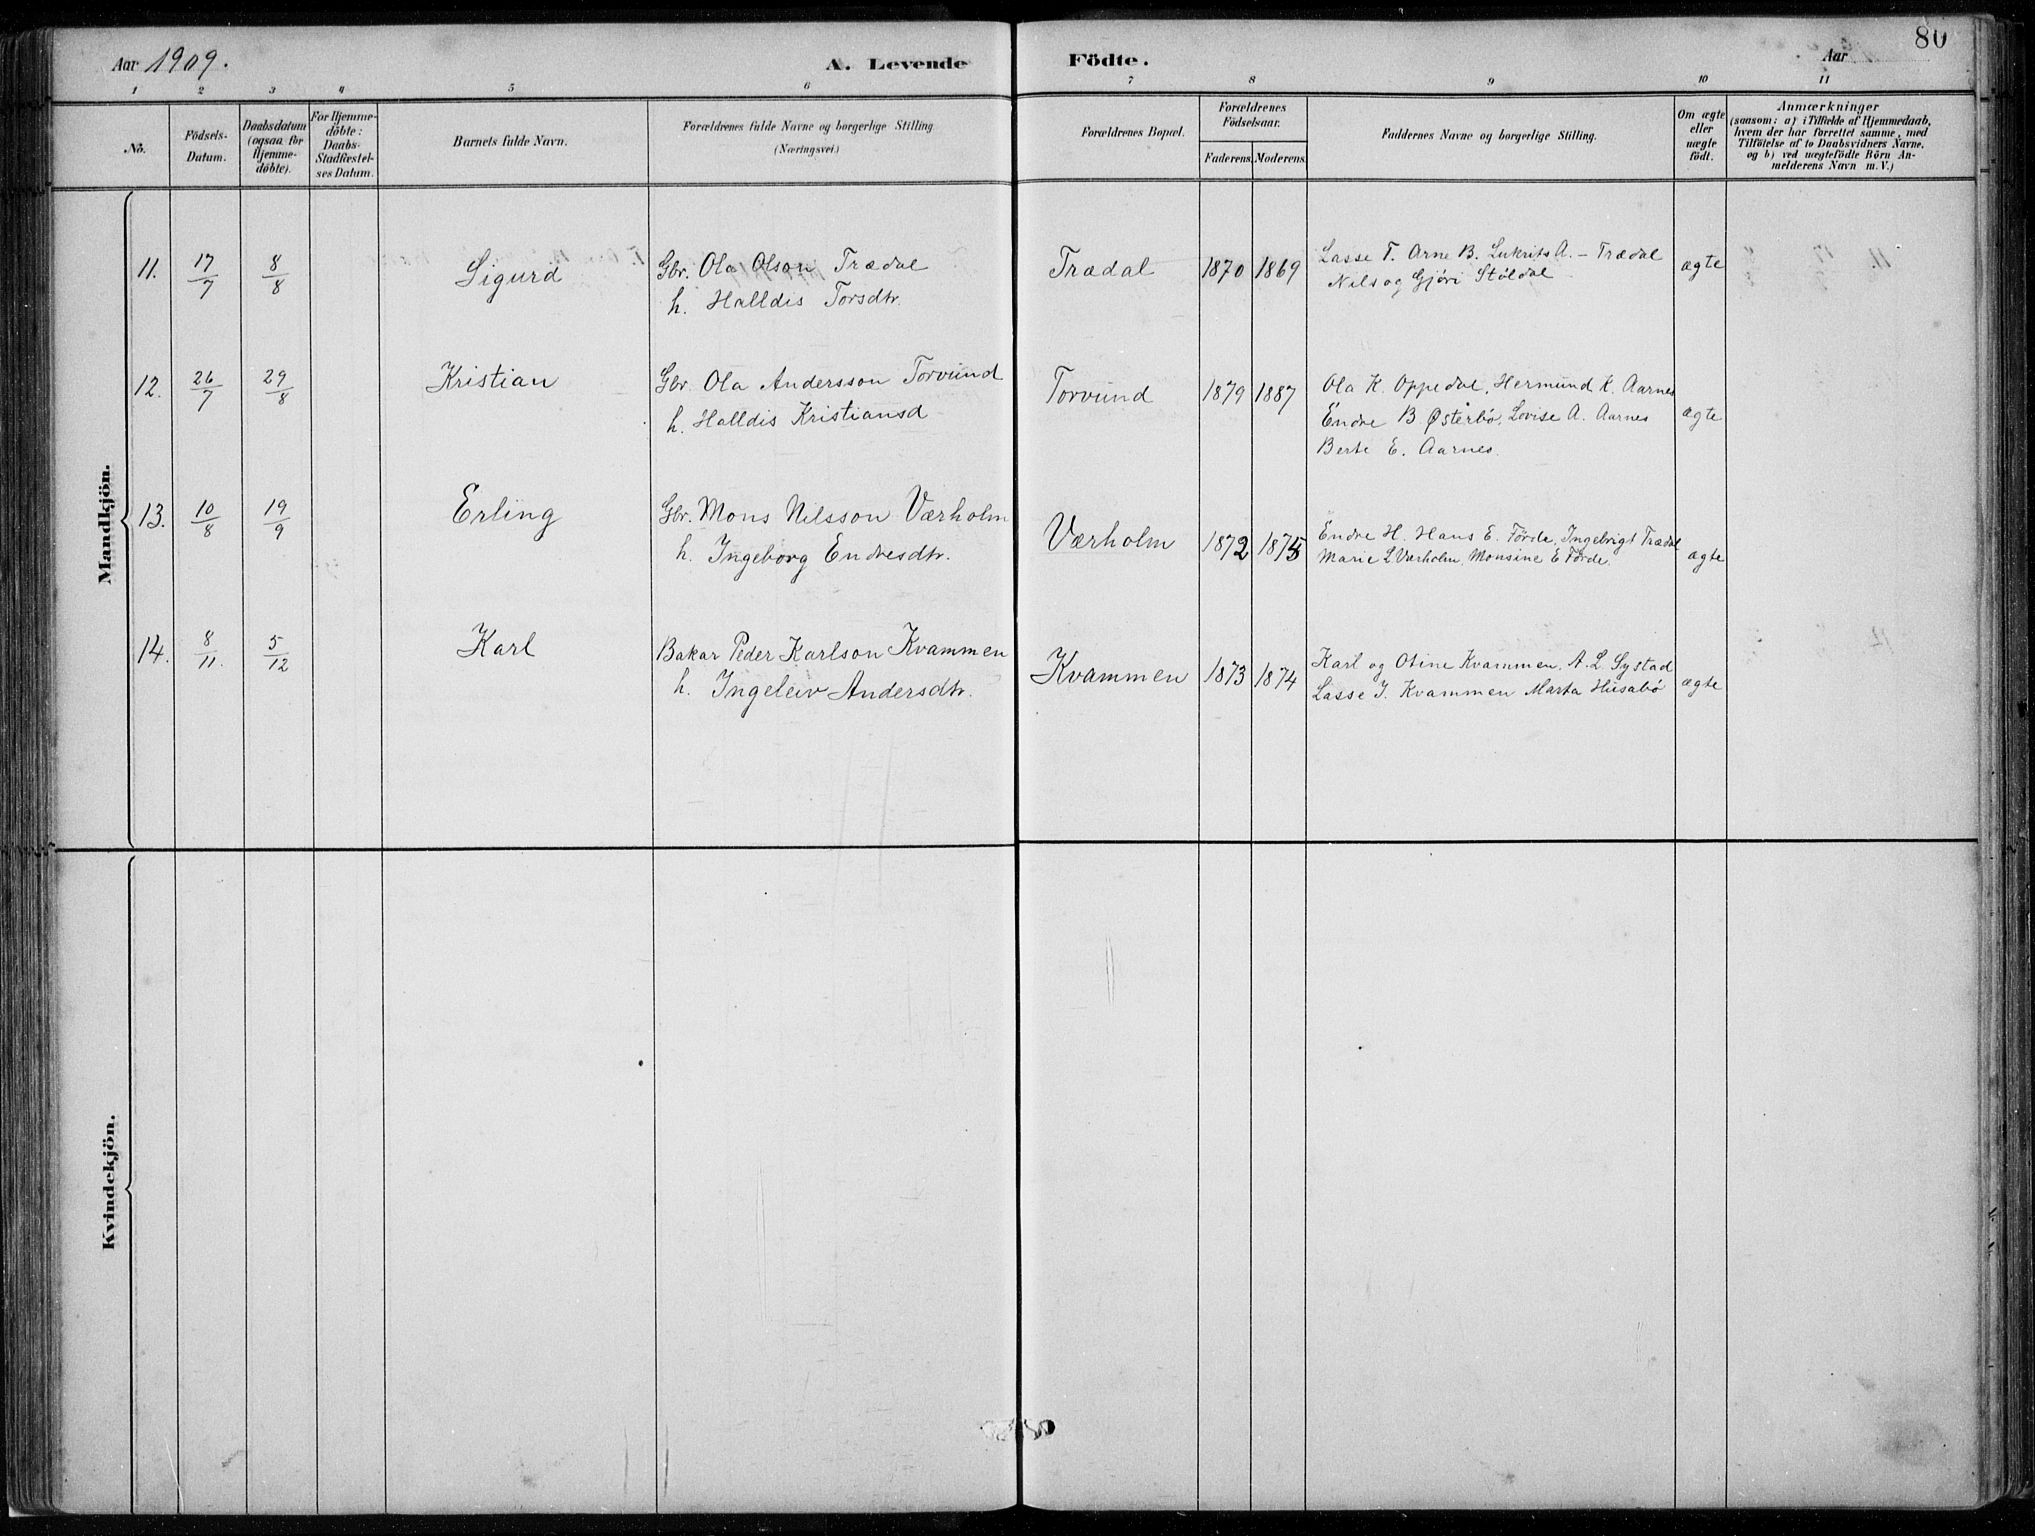 80
Aar 1909. A. Levende Födte. Aar
1 2 3 4 5 6 7 8 9 10 11
No.
Födsels-Datum.
Daabsdatum (ogsaa for Hjemme-döbte).
For Hjemme-döbte: Daabs-Stadfæstel-ses Datum.
Barnets fulde Navn.
Forældrenes fulde Navne og borgerlige Stilling
(Næringsvei.)
Forældrenes Bopæl.
Forældrenes Födselsaar.
Faderens. Moderens.
Faddernes Navne og borgerlige Stilling.
Om ægte eller uægte födt.
Anmærkninger
(saasom: a) i Tilfælde af Hjemmedaab,
hvem der har forrettet samme, med
Tilföielse af to Daabsvidners Navne,
og b) ved uægtefödte Börn An-
melderens Navn m.V.)
Mandkjön.
11. 17/7 8/8 Sigurd Gbr. Ola Olson Trædal Trædal 1870 1869 Lasse T. Arne B. Lukrits A. - Trædal ægte
h. Halldis Torsdtr. Nils og Gjöri Støldal
12. 26/7 29/8 Kristian Gbr. Ola Andersson Torvund Torvund 1879 1887 Ola K. Oppedal, Hermund K. Aarnes
h. Halldis Kristiansd Endre B. Østerbø, Lovise A. Aarnes ægte
Berte E. Aarnes.
13. 10/8 19/9 Erling Gbr. Mons Nilsson Værholm Værholm 1872 1875 Endre H. Hans E. Förde, Ingebrigt Trædal
h. Ingeborg Endresdtr. Marie L Værholm, Monsine E Förde. ægte
14. 8/11. 5/12 Karl Bakar Peder Karlson Kvammen Kvammen 1873 1874 Karl og Otine Kvammen, A. L Systad
h. Ingeleiv Andersdtr. Lasse J. Kvammen Marta Husabø ægte
Kvindekjön.